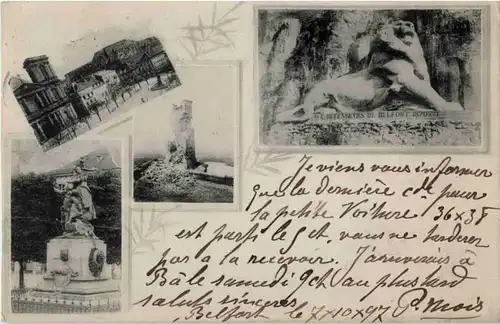 AUX DEFENSEURS DE BELFORT 1870-1871
Je viens vous informer
que la dernière c/de pour
la petite Voiture 36x38
est partie le 5 ct, vous ne tarderez
pas a la recevoir. J'arriverais à
Bâle samedi 9 ct au plus tard
saluts sincères
Belfort le 7-10-97